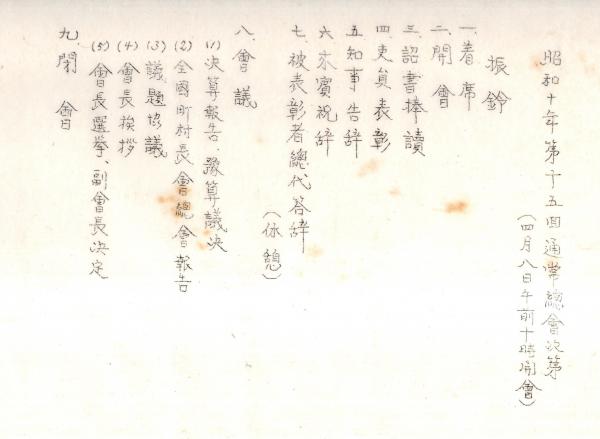 昭和十年第十五回通常總會次第
(四月八日午前十時開會)
振鈴
一、着席
二、開會
三、詔書捧讀
四、吏員表彰
五、知事告辞
六、来賓祝辞
七、被表彰者總代答辞
(休憩)
八、會議
(1)決算報告、豫算議決
(2)全國町村長會總會報告
(3)議題協議
(4)會長挨拶
(5)會長選挙、副會長決定
九、閉會